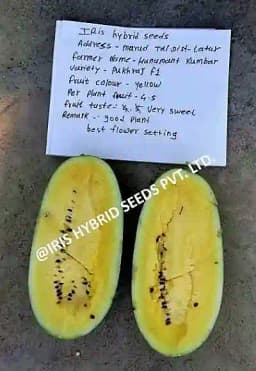 IRis hybrid seeds
Address - marud Tal Dist - Latur
farmer Name - Hanumant Kumbar
Variety - Pukhraj F1
Fruit colour - yellow
Per plant fruit - 4-5
fruit taste - Very sweet
Remark - good plant
best flower setting
@IRIS HYBRID SEEDS PVT. LTD